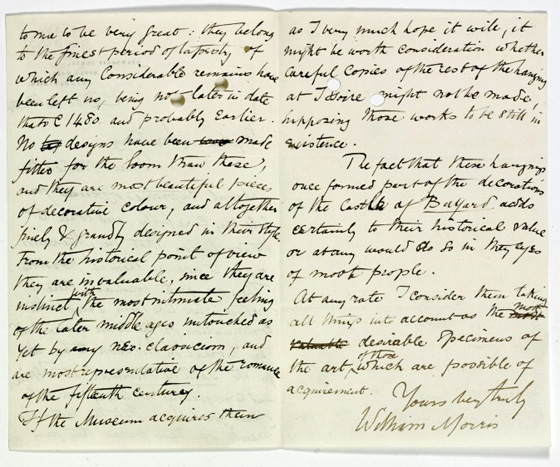 to me to be very great: they belong
to the finest period of tapestry of
which any considerable remains have
been left us, being not later in date
than 1480 and probably earlier.
No designs have been made
fitter for the loom than these,
and they are most beautiful pieces
of decorative colour, and altogether
finely & grandly designed in their style
From the historical point of view
they are invaluable, since they are
instinct with the most intimate feeling
of the later middle ages untouched as
yet by any neo-classicism, and
are most representative of the romance
of the fifteenth century.
If the Museum acquires them
as I very much hope it will, it
might be worth consideration whether
careful copies of the rest of the hangings
at might not be made,
supposing those works to be still in
existence.
The fact that these hangings
once formed part of the decorations
of the Castle of Bayard adds
certainly to their historical value
or at any would do so in the eyes
of most people.
At any rate I consider them taking
all things into account as the most
valuable desirable specimens of
the art, of those which are possible of
acquirement. Yours very truly
William Morris